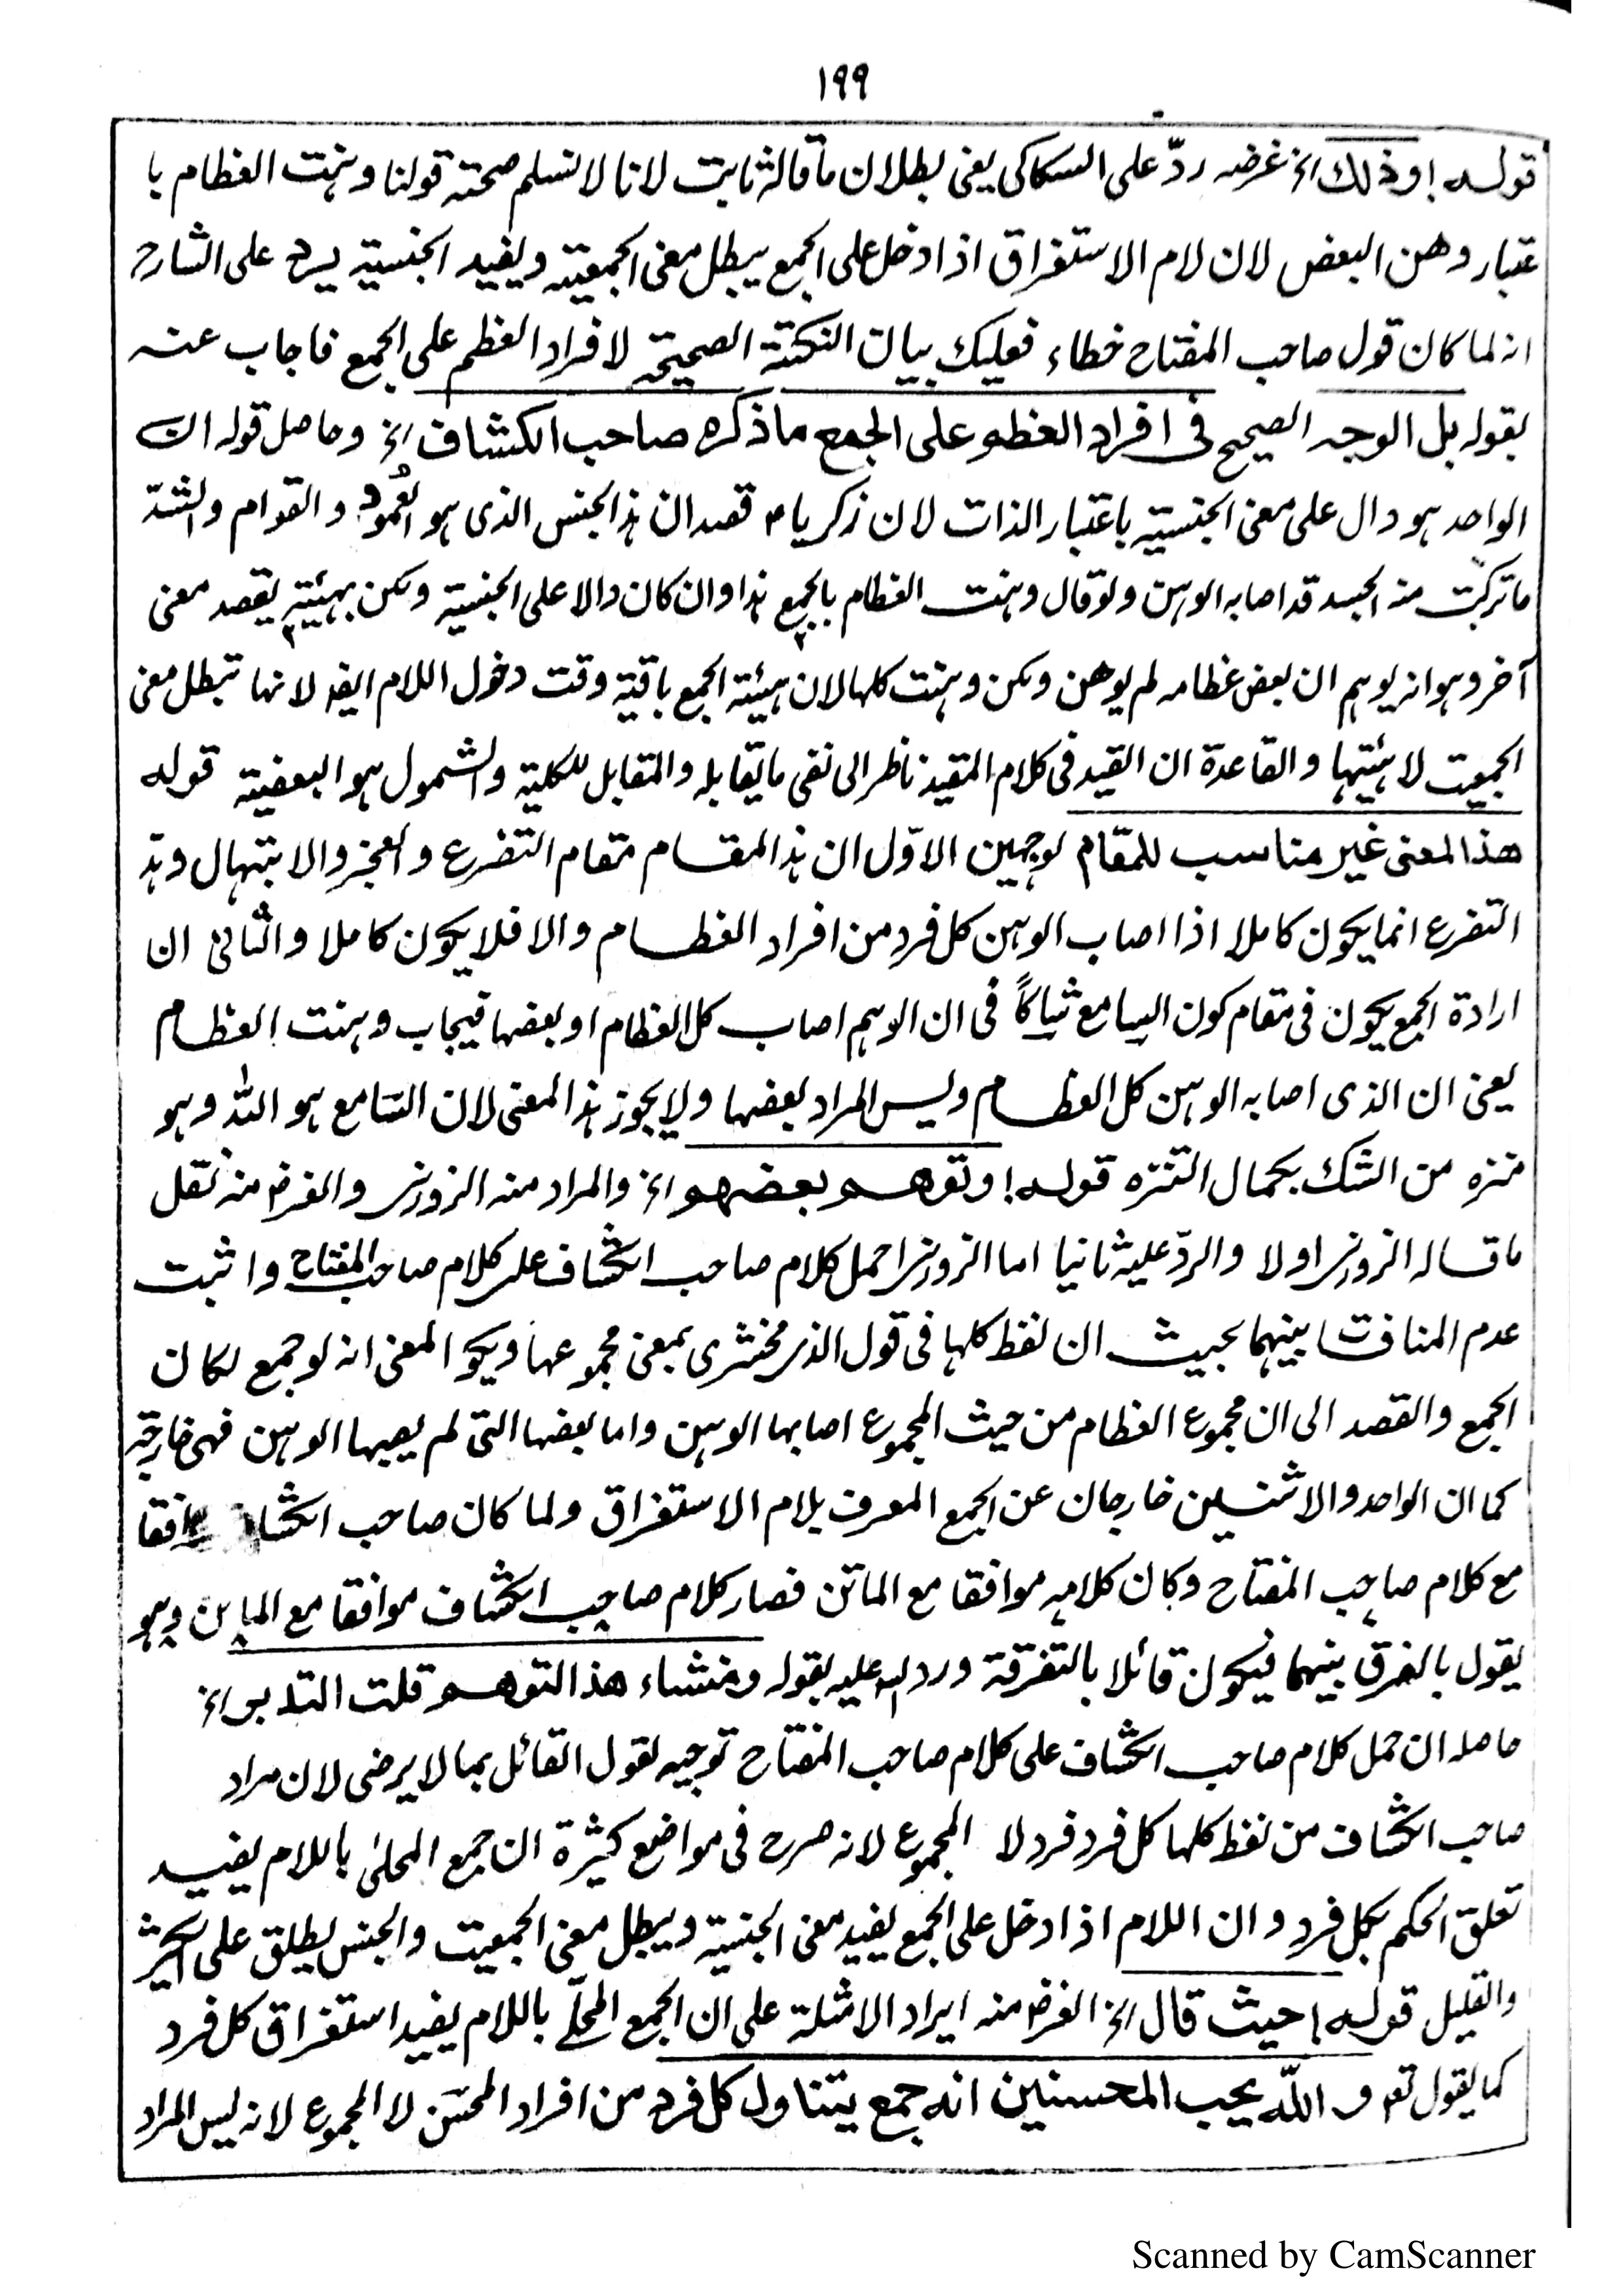 ١٩٩
قوله! وذلك الخ غرضه ردّ على السكاكى يعنى بطلان ما قاله ثابت لانا لا نسلم صحة قولنا وهنت العظام با
عتبار وهن البعض لان لام الاستغراق اذا دخل على الجمع يبطل معنى الجمعية ويفيد الجنسية يرد على الشارح
انه لما كان قول صاحب المفتاح خطاء فعليك بيان النكتة الصحيحة لافراد العظم على الجمع فاجاب عنه
بقوله بل الوجه الصحيح فى افراد العظم على الجمع ما ذكره صاحب الكشاف الخ وحاصل قوله ان
الواحد هو دال على معنى الجنسية باعتبار الذات لان زكريا ع قصد ان هذا الجنس الذى هو العمود والقوام واشدّ
ما تركبت منه الجسد قد اصابه الوهن ولو قال وهنت العظام بالجمع هذا وان كان دالا على الجنسية ولكن بهيئته يقصد معنى
آخر وهو انه يوهم ان بعض عظامه لم يوهن ولكن وهنت كلها لان هيئة الجمع باقية وقت دخول اللام ايضا لانها تبطل معنى
الجمعيت لا هيئتها والقاعدة ان القيد فى كلام المقيد ناظر الى نفى ما يقابله والمقابل للكلية والشمول هو البعضية قوله
هذا المعنى غير مناسب للمقام لوجهين الاوّل ان هذا المقام مقام التضرع والعجز والابتهال وهذ
التضرع انما يكون كاملا اذا اصاب الوهن كل فرد من افراد العظام والا فلا يكون كاملا والثانى ان
ارادة الجمع يكون فى مقام كون السامع شاكاً فى ان الوهم اصاب كل العظام او بعضها فيجاب وهنت العظام
يعنى ان الذى اصابه الوهن كل العظام وليس المراد بعضها ولا يجوز هذا المعنى لان السّامع هو الله وهو
منزه من الشك بكمال التنزه قوله! وتوهم بعضهم الخ والمراد منه الزوزنى والغرض منه نقل
ما قاله الزوزنى اولا والردّ عليه ثانيا اما الزوزنى احمل كلام صاحب الكشاف على كلام صاحب المفتاح واثبت
عدم المنافت بينهما بحيث ان لفظ كلها فى قول الذمخشرى بمعنى مجموعها ويكو المعنى انه لو جمع لكان
الجمع والقصد الى ان مجموع العظام من حيث المجموع اصابها الوهن واما بعضها التى لم يصبها الوهن فهى خارجة
كما ان الواحد والاثنين خارجان عن الجمع المعرف بلام الاستغراق ولما كان صاحب الكشاف موافقا
مع كلام صاحب المفتاح وكان كلامه موافقا مع الماتن فصار كلام صاحب الكشاف موافقا مع الماتن وهو
يقول بالفرق بينهما فيكون قائلا بالتفرقة ورد عليه بقوله ومنشاء هذا التوهم قلت التدبر الخ
حاصله ان حمل كلام صاحب الكشاف على كلام صاحب المفتاح توجيه لقول القائل بما لا يرضى لان مراد
صاحب الكشاف من لفظ كلها كل فرد فرد لا المجموع لانه صرح فى مواضع كثيرة ان جمع المحلى باللام يفيد
تعلق الحكم بكل فرد وان اللام اذا دخل على الجمع يفيد معنى الجنسية ويبطل معنى الجمعيت والجنس يطلق على الكثير
والقليل قوله! حيث قال الخ الغرض منه ايراد الامثلة على ان الجمع المحلّى باللام يفيد استغراق كل فرد
كما يقول تع و اللّه يحب المحسنين انه جمع يتناول كل فرد من افراد المحسن لا المجموع لانه ليس المراد
Scanned by CamScanner